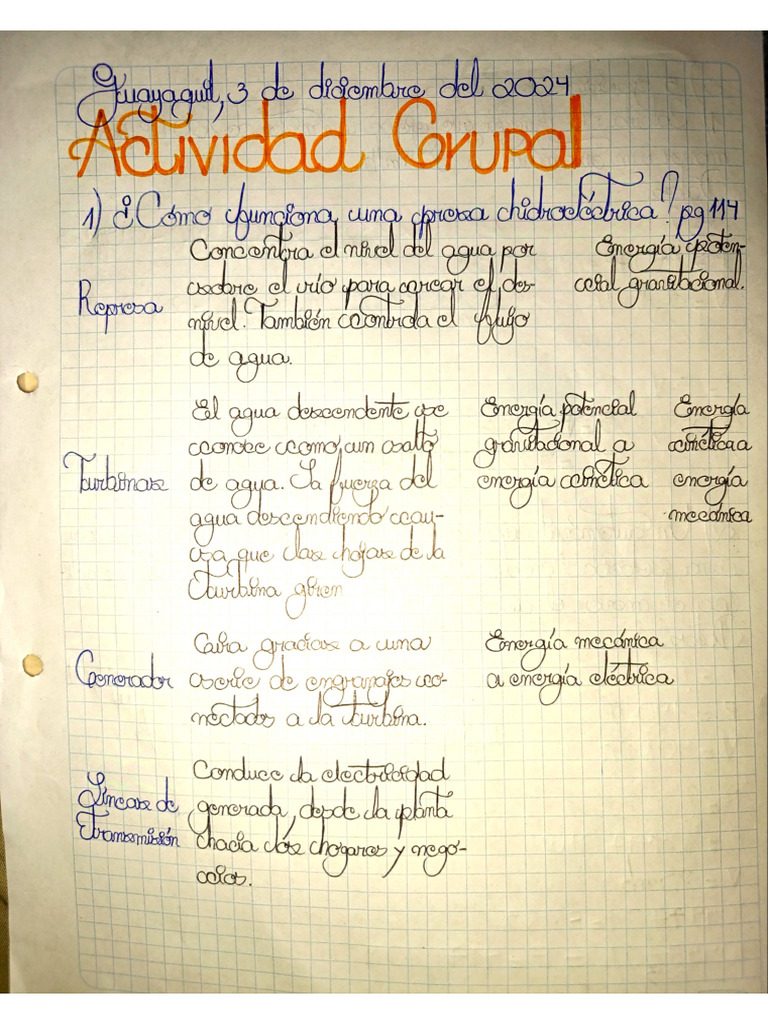 Guayaquil, 3 de diciembre del 2024
Actividad Grupal
1) ¿Cómo funciona una presa hidroeléctrica? pg 114
Represa
Concentra el nivel del agua por
sobre el río para crear el des-
nivel. También controla el flujo
de agua.
Energía poten-
cial gravitacional.
Turbinas
El agua descendente se
conoce como un salto
de agua. La fuerza del
agua descendiendo cau-
sa que las hojas de la
turbina giren
Energía potencial
gravitacional a
energía cinética
Energía
cinética a
energía
mecánica
Generador
Gira gracias a una
serie de engranajes co-
nectados a la turbina.
Energía mecánica
a energía eléctrica
Líneas de
Transmisión
Conduce la electricidad
generada, desde la planta
hacia los hogares y nego-
cios.